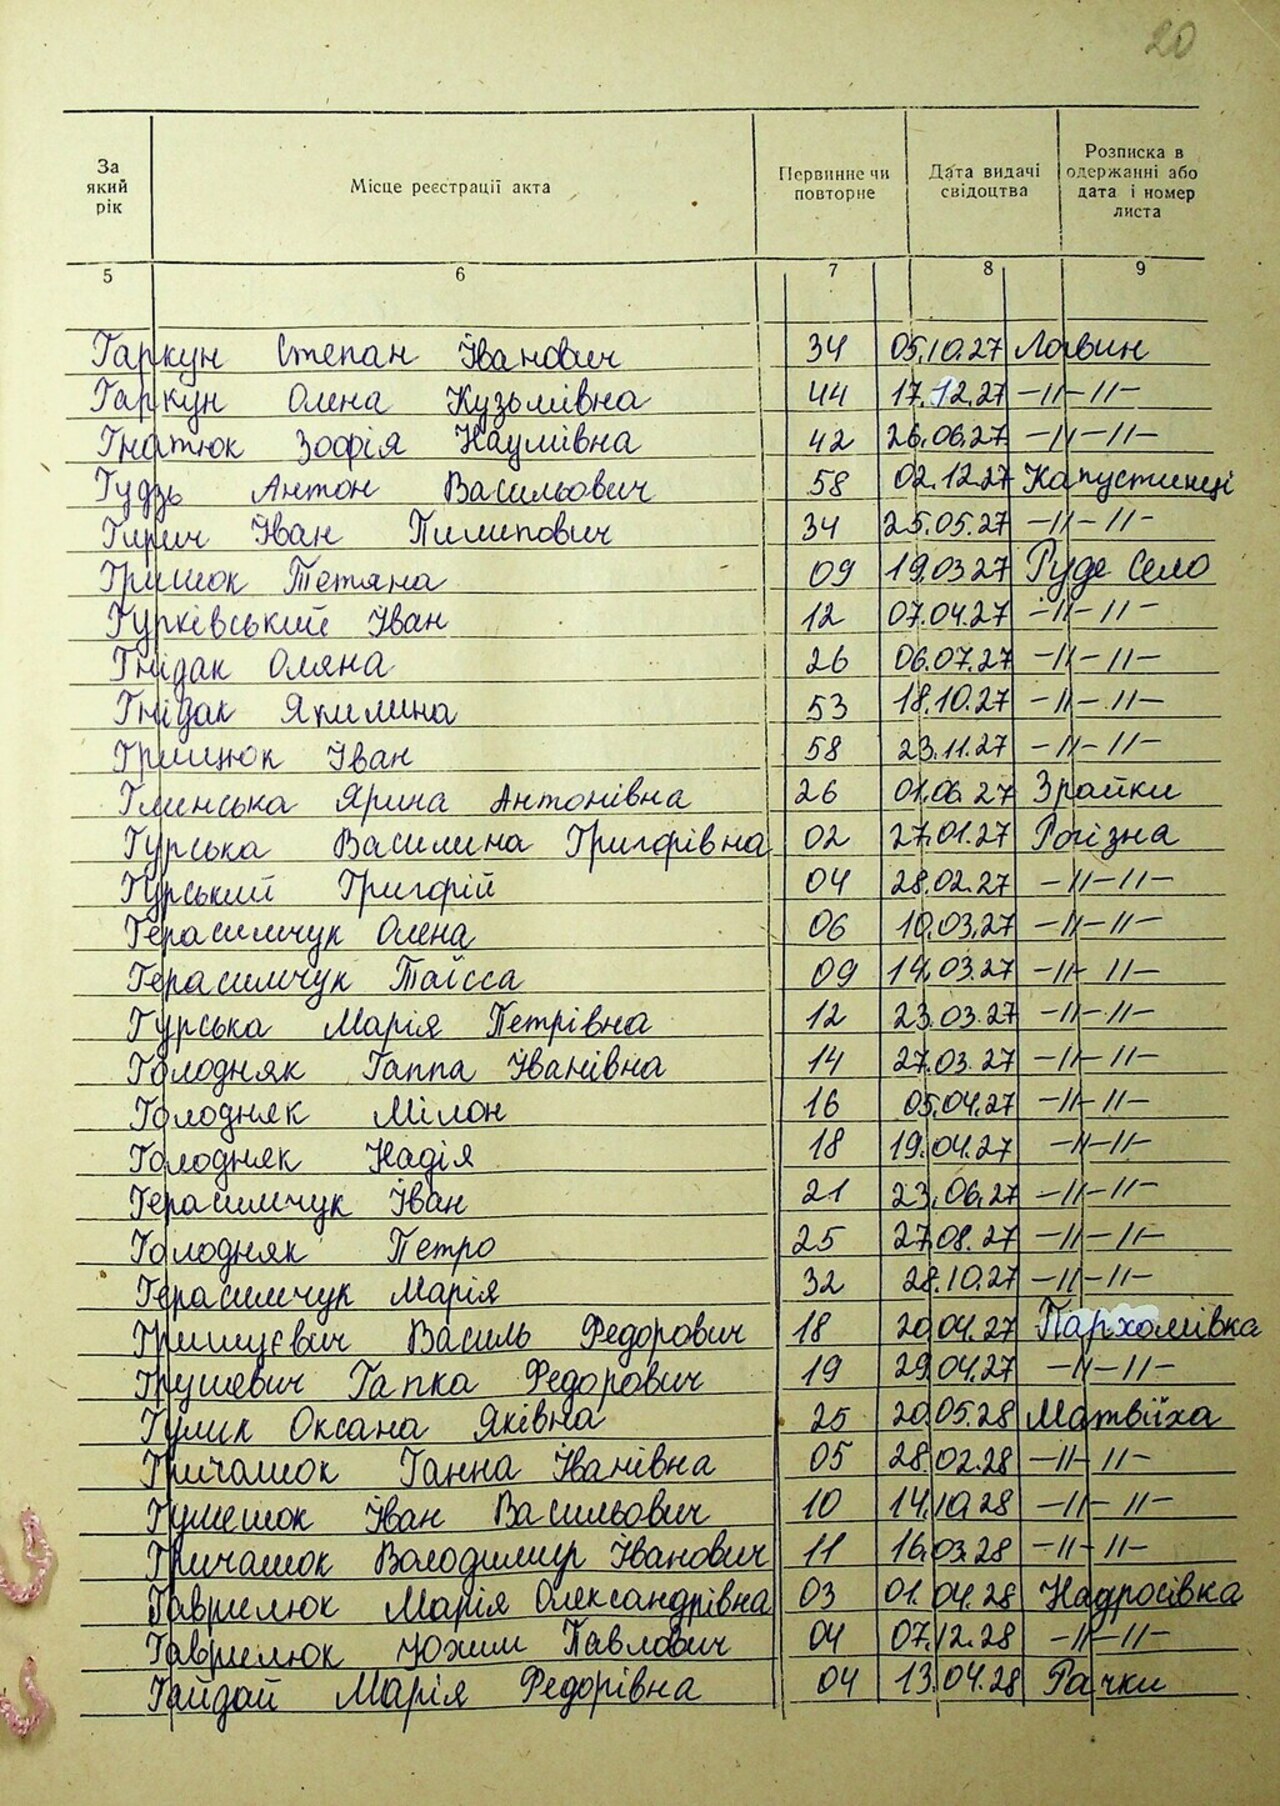 20
За який рік
Місце реєстрації акта
Первинне чи повторне
Дата видачі свідоцтва
Розписка в одержанні або дата і номер листа
5 6 7 8 9
Гаркун Степан Іванович 34 05.10.27 Логвин
Гаркун Олена Кузьмівна 44 17.12.27 -//-//-
Гнатюк Зофія Наумівна 42 26.06.27 -//-//-
Гудзь Антон Васильович 58 02.12.27 Капустинці
Гирич Іван Пилипович 34 25.05.27 -//-//-
Гришок Тетяна 09 19.03.27 Руде Село
Гурківський Іван 12 07.04.27 -//-//-
Гнідак Оляна 26 06.07.27 -//-//-
Гнідак Якилина 53 18.10.27 -//-//-
Грицюк Іван 58 23.11.27 -//-//-
Глинська Ярина Антонівна 26 01.06.27 Зрайки
Гурська Василина Григорівна 02 27.01.27 Рогізна
Гурський Григорій 04 28.02.27 -//-//-
Герасимчук Олена 06 10.03.27 -//-//-
Герасимчук Таїсса 09 14.03.27 -//-//-
Гурська Марія Петрівна 12 23.03.27 -//-//-
Голодняк Гаппа Іванівна 14 27.03.27 -//-//-
Голодняк Мілон 16 05.04.27 -//-//-
Голодняк Надія 18 19.04.27 -//-//-
Герасимчук Іван 21 23.06.27 -//-//-
Голодняк Петро 25 27.08.27 -//-//-
Герасимчук Марія 32 28.10.27 -//-//-
Василь Федорович 18 20.04.27 Пархомівка
Грушевич Гапка Федорович 19 29.04.27 -//-//-
Гулик Оксана Яківна 25 20.05.28 Матвіїха
Гричашок Ганна Іванівна 05 28.02.28 -//-//-
Гумешок Іван Васильович 10 14.10.28 -//-//-
Гричашок Володимир Іванович 11 16.03.28 -//-//-
Гаврилюк Марія Олександрівна 03 01.04.28 Надросівка
Гаврилюк Юхим Павлович 04 07.12.28 -//-//-
Гайдай Марія Федорівна 04 13.04.28 Рачки